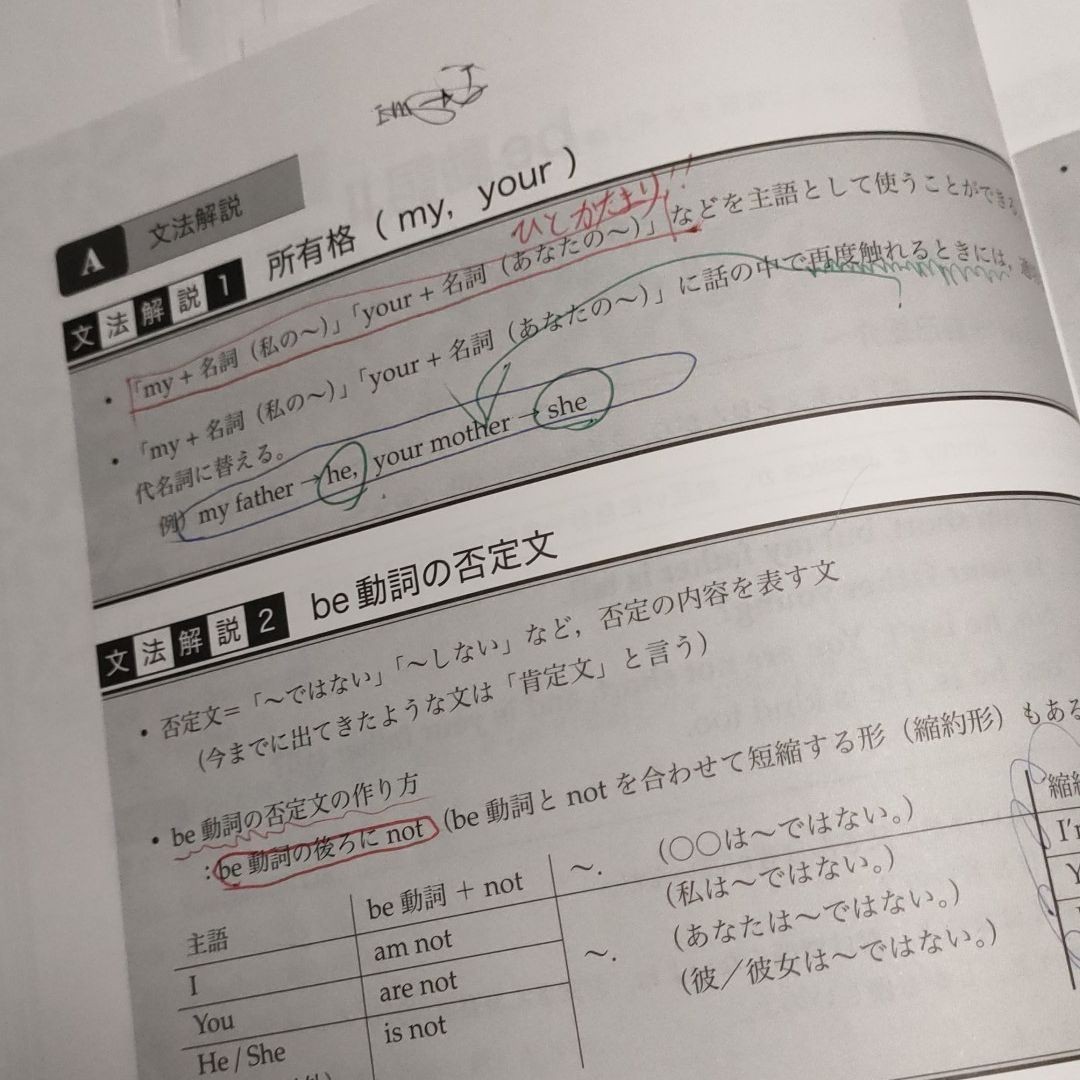 A 文法解説
文法解説1 所有格（my, your）
ひとかたまり!!
・「my + 名詞（私の〜）」「your + 名詞（あなたの〜）」などを主語として使うことができる
・「my + 名詞（私の〜）」「your + 名詞（あなたの〜）」に話の中で再度触れるときには，
代名詞に替える。
例）my father → he, your mother → she
文法解説2 be動詞の否定文
・否定文＝「〜ではない」「〜しない」など，否定の内容を表す文
（今までに出てきたような文は「肯定文」と言う）
・be動詞の否定文の作り方
：be動詞の後ろに not（be動詞と not を合わせて短縮する形（縮約形）もある
主語 be動詞 + not 〜. （○○は〜ではない。）
I am not 〜. （私は〜ではない。） I'm
You are not （あなたは〜ではない。）
He / She is not （彼／彼女は〜ではない。）